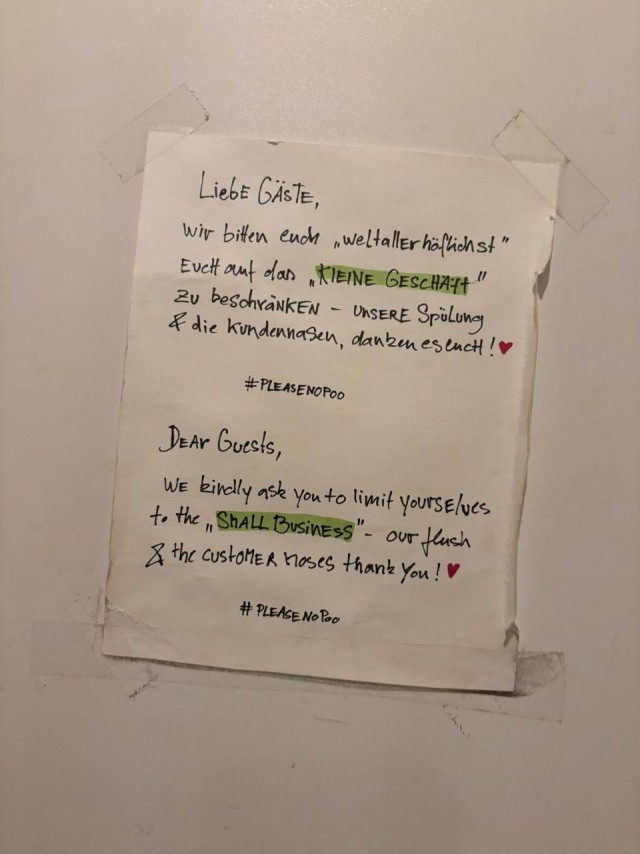 Liebe Gäste,
wir bitten euch „weltallerhöflichst"
Euch auf das „KLEINE GESCHÄFT"
zu beschränken – unsere Spülung
& die Kundennasen, danken es euch! ♥
#PLEASENOPOO
Dear Guests,
We kindly ask you to limit yourselves
to the „SMALL BUSINESS" – our flush
& the customer noses thank you! ♥
#PLEASENOPOO